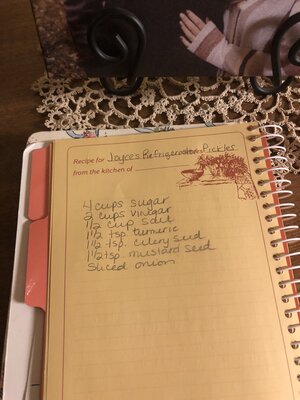 Recipe for Joyces Refrigerator Pickles
from the kitchen of
4 cups sugar
2 cups vinegar
1/2 cup salt
1 1/2 tsp turmeric
1 1/2 tsp. celery seed
1 1/2 tsp. mustard seed
sliced onion